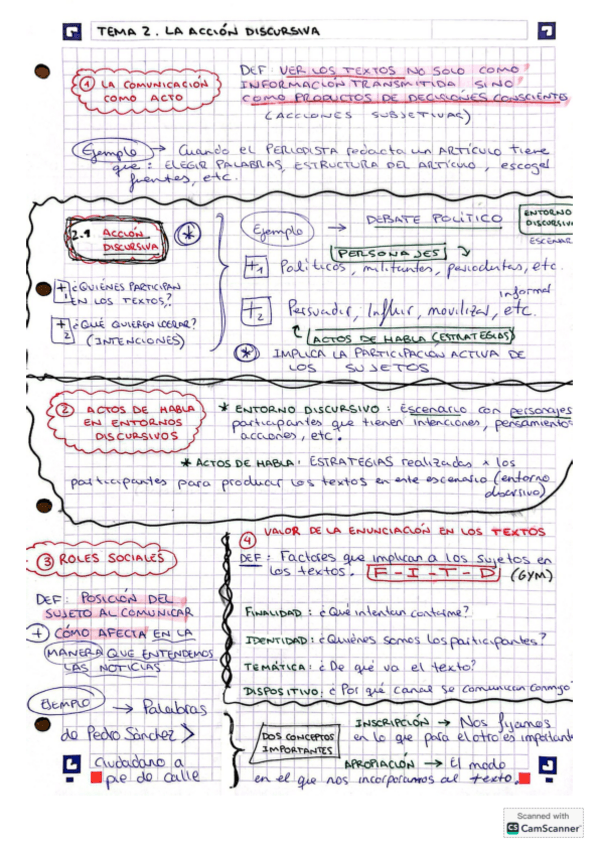 TEMA 2. LA ACCIÓN DISCURSIVA
1 LA COMUNICACIÓN
COMO ACTO
DEF: VER LOS TEXTOS NO SOLO COMO
INFORMACIÓN TRANSMITIDA SINO
COMO PRODUCTOS DE DECISIONES CONSCIENTES
(ACCIONES SUBJETIVAS)
Ejemplo → Cuando el PERIODISTA redacta un ARTÍCULO tiene
que: ELEGIR PALABRAS, ESTRUCTURA DEL ARTÍCULO, escoger
fuentes, etc.
2.1 ACCIÓN
DISCURSIVA *
+1 ¿QUIÉNES PARTICIPAN
EN LOS TEXTOS?
+2 ¿QUÉ QUIEREN LOGRAR?
(INTENCIONES)
Ejemplo → DEBATE POLÍTICO
ENTORNO
DISCURSIV
ESCENAR
PERSONAJES
+1 Políticos, militantes, periodistas, etc.
+2 Persuadir, Influir, movilizar, etc
informar
ACTOS DE HABLA (ESTRATEGIAS)
* IMPLICA LA PARTICIPACIÓN ACTIVA DE
LOS SUJETOS
2 ACTOS DE HABLA
EN ENTORNOS
DISCURSIVOS
* ENTORNO DISCURSIVO: Escenario con personajes
participantes que tienen intenciones, pensamiento
acciones, etc.
* ACTOS DE HABLA: ESTRATEGIAS realizadas x los
participantes para producir los textos en este escenario (entorno
discursivo)
3 ROLES SOCIALES
DEF: POSICIÓN DEL
SUJETO AL COMUNICAR
+ CÓMO AFECTA EN LA
MANERA QUE ENTENDEMOS
LAS NOTICIAS
EJEMPLO → Palabras
de Pedro Sánchez >
ciudadano a
pie de calle
4 VALOR DE LA ENUNCIACIÓN EN LOS TEXTOS
DEF: Factores que implican a los sujetos en
los textos. F-I-T-D (GYM)
FINALIDAD: ¿Qué intentan contarme?
IDENTIDAD: ¿Quiénes somos los participantes?
TEMÁTICA: ¿De qué va el texto?
DISPOSITIVO: ¿Por qué canal se comunican conmigo
DOS CONCEPTOS
IMPORTANTES
INSCRIPCIÓN → Nos fijamos
en lo que para el otro es important
APROPIACIÓN → El modo
en el que nos incorporamos al texto.
Scanned with
CS CamScanner